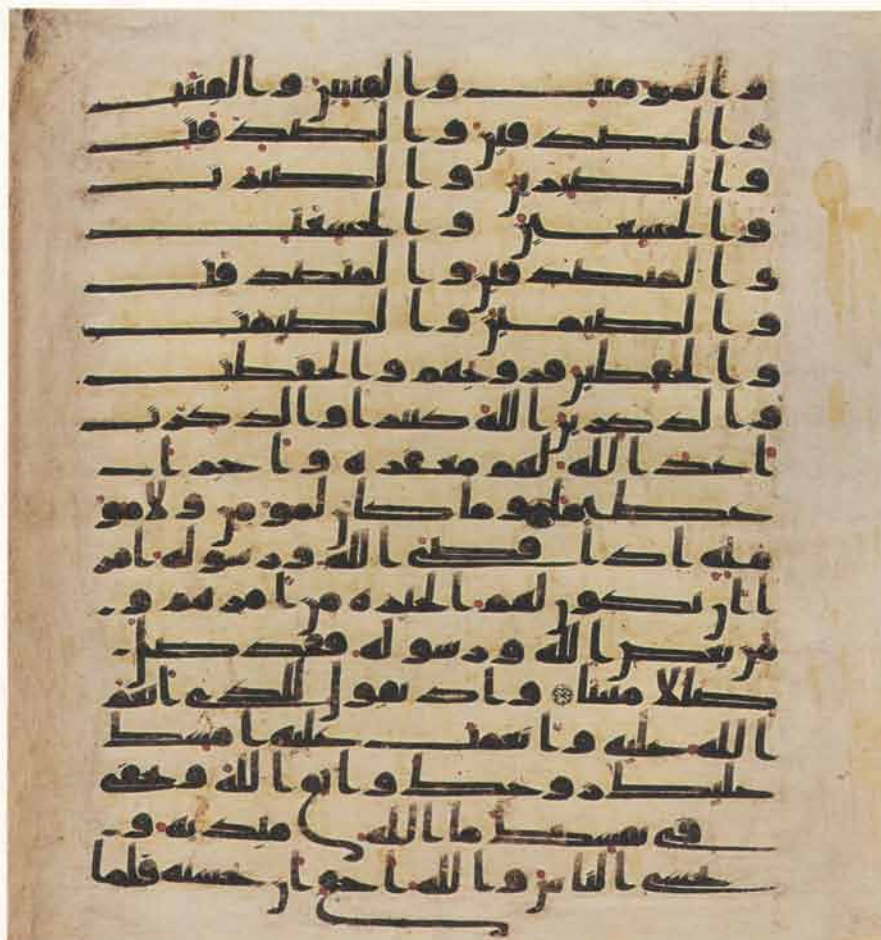 والمومنت والقنتين والقنتت
والصدقين والصدقت
والصبرين والصبرت
والخشعين والخشعت
والمتصدقين والمتصدقت
والصيمين والصيمت
والحفظين فروجهم والحفظت
والذكرين الله كثيرا والذكرت
اعد الله لهم مغفرة واجرا
عظيما وما كان لمومن ولا مو
منة اذا قضى الله ورسوله امر
ا ان يكون لهم الخيرة من امرهم و
من يعص الله ورسوله فقد ضل
ضلالا مبينا واذ تقول للذي انعم
الله عليه وانعمت عليه امسك
عليك زوجك واتق الله وتخفي
في نفسك ما الله مبديه و
تخشى الناس والله احق ان تخشيه فلما